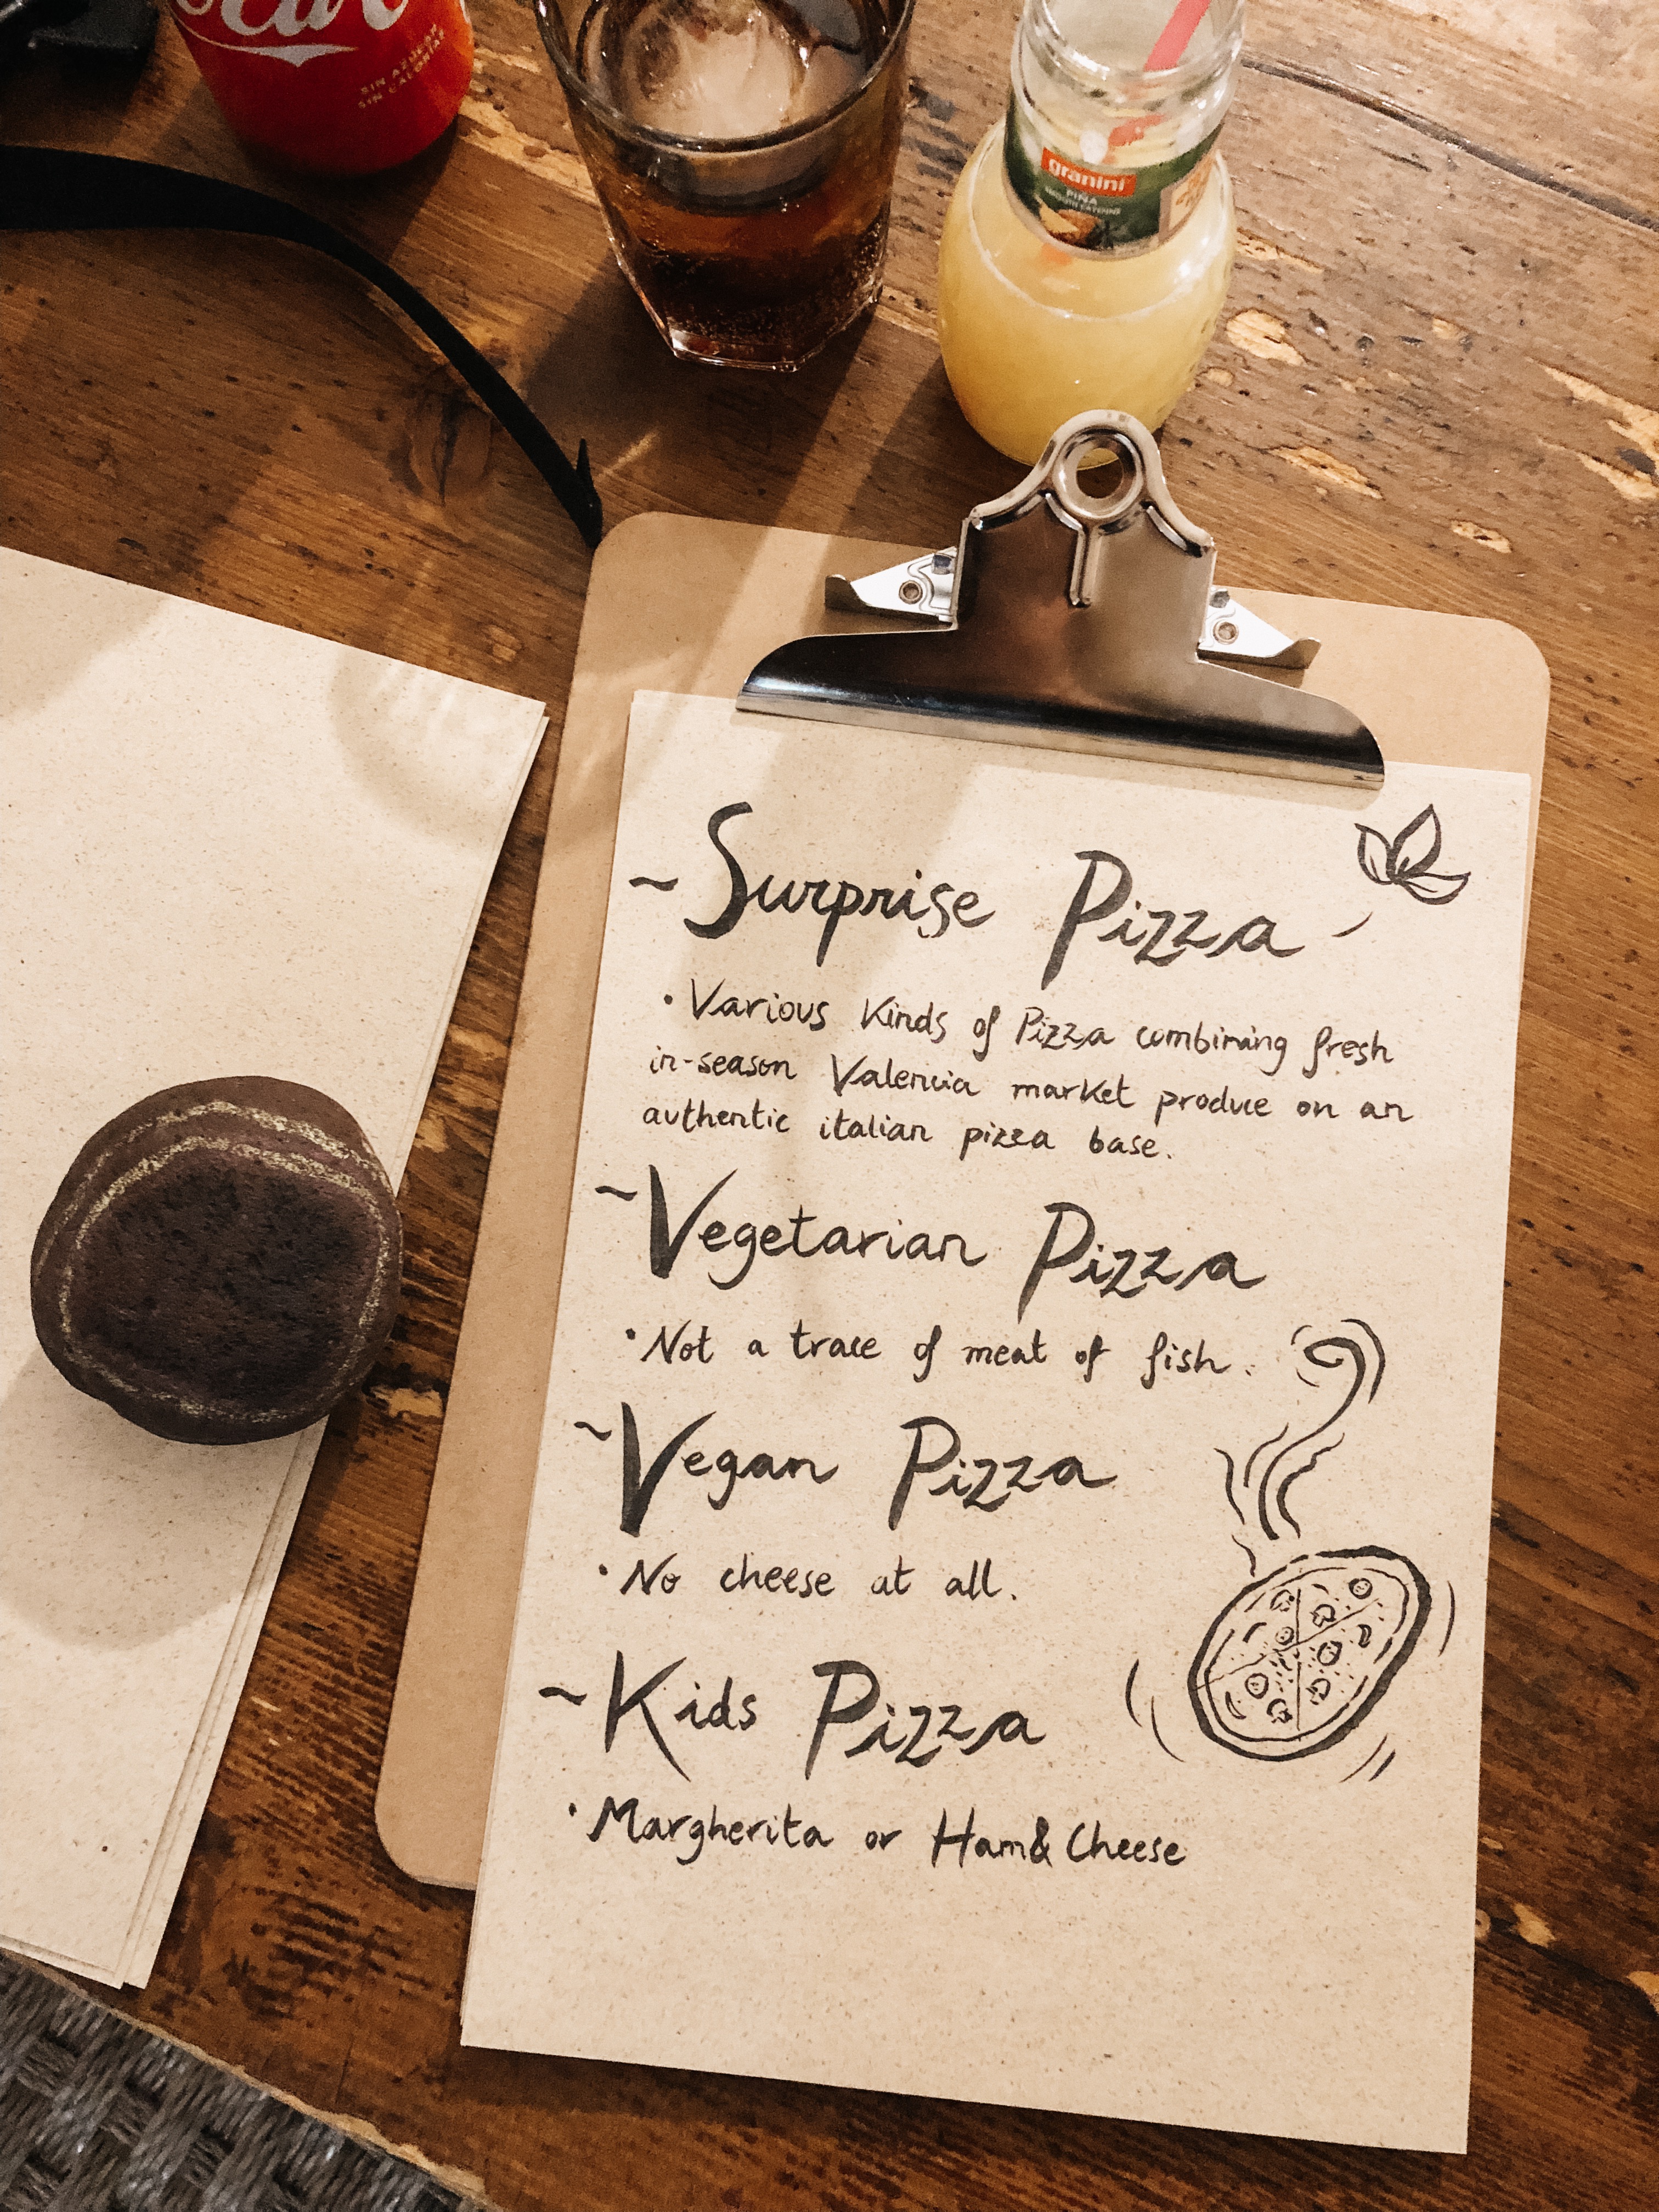 SIN AZÚCAR
SIN CALORÍAS
granini
PIÑA
~ Surprise Pizza
• Various Kinds of Pizza combining fresh
in-season Valencia market produce on an
authentic italian pizza base.
~ Vegetarian Pizza
• Not a trace of meat of fish.
~ Vegan Pizza
• No cheese at all.
~ Kids Pizza
• Margherita or Ham & Cheese